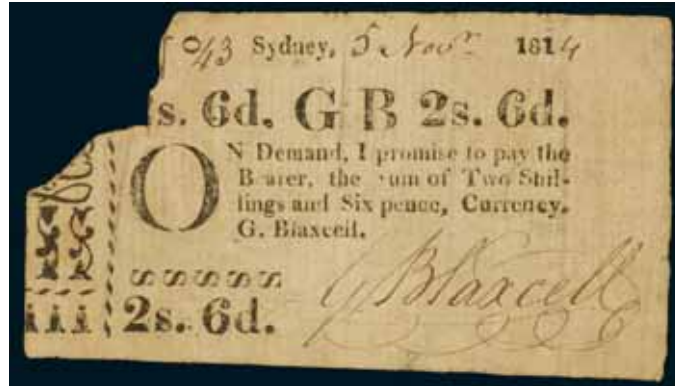 43 Sydney, 5 Novr 1814
s. 6d. G B 2s. 6d.
ON Demand, I promise to pay the
Bearer, the sum of Two Shil-
lings and Six pence, Currency.
G. Blaxcell.
2s. 6d.
G Blaxcell